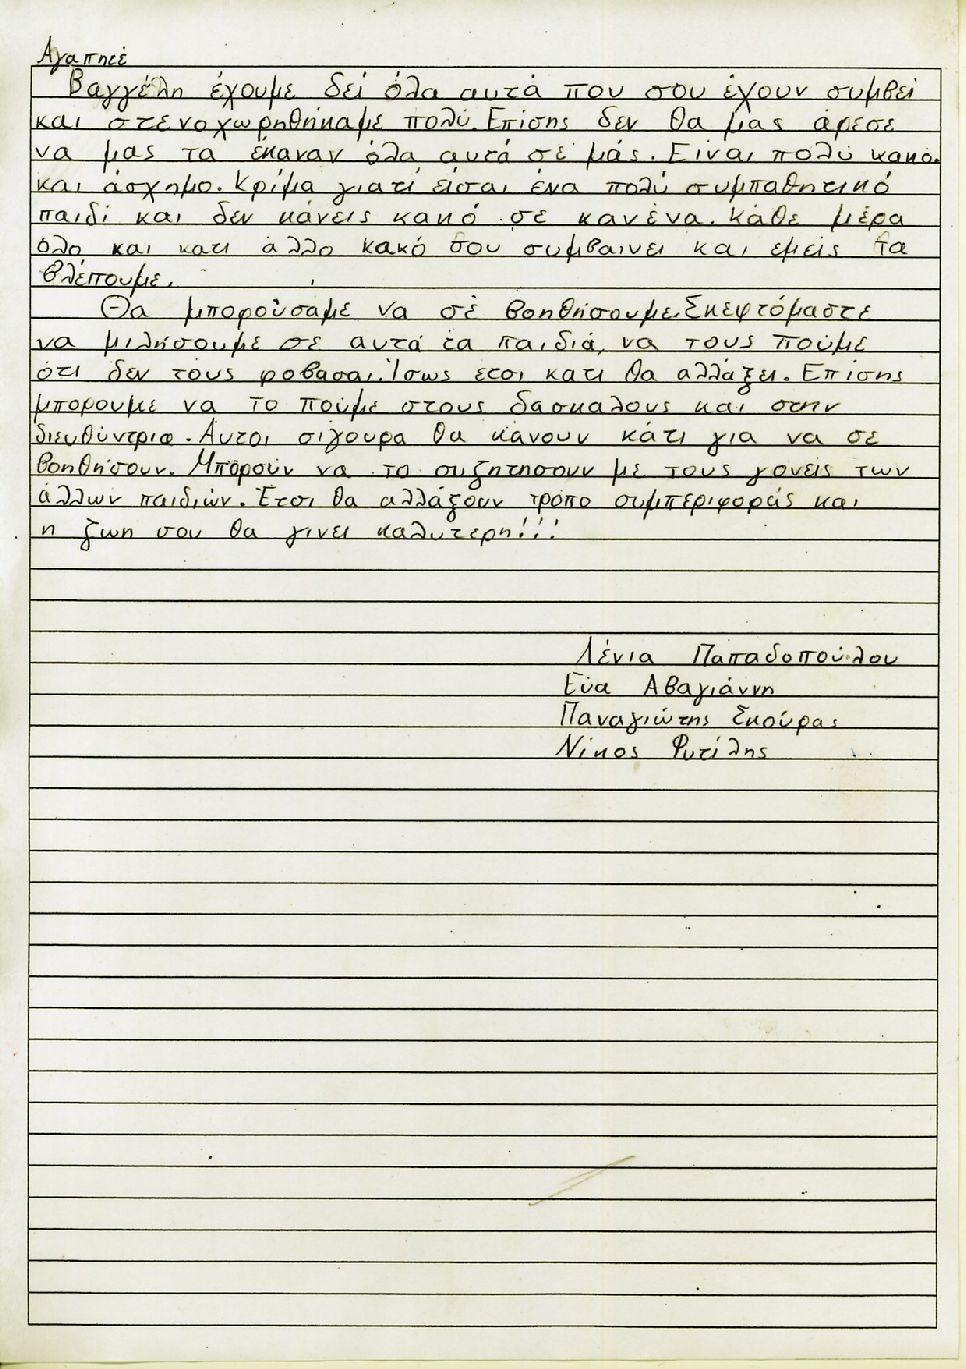 Αγαπητέ
Βαγγέλη έχουμε δεί όλα αυτά που σου έχουν συμβεί
και στενοχωρηθήκαμε πολύ. Επίσης δεν θα μας άρεσε
να μας τα έκαναν όλα αυτά σε μάς. Είναι πολύ κακό
και άσχημο. Κρίμα γιατί είσαι ένα πολύ συμπαθητικό
παιδί και δεν κάνεις κακό σε κανένα. Κάθε μέρα
όλο και κατι άλλο κακό σου συμβαινει και εμείς τα
βλέπουμε.
Θα μπορούσαμε να σέ βοηθήσουμε. Σκεφτόμαστε
να μιλήσουμε σε αυτά τα παιδιά, να τους πούμε
ότι δεν τους φοβασαι. Ισως ετσι κατι θα αλλάξει. Επίσης
μπορουμε να το πούμε στους δασκαλους και στην
διευθύντρια. Αυτοι σίγουρα θα κάνουν κάτι για να σε
βοηθήσουν. Μπορούν να το συζητησουν με τους γονείς των
άλλων παιδιών. Έτσι θα αλλάξουν τρόπο συμπεριφοράς και
η ζωη σου θα γινει καλυτερη!!!
Λένια Παπαδοπούλου
Εύα Αβαγιάννη
Παναγιώτης Σκούρας
Νίκος Φυτίλης